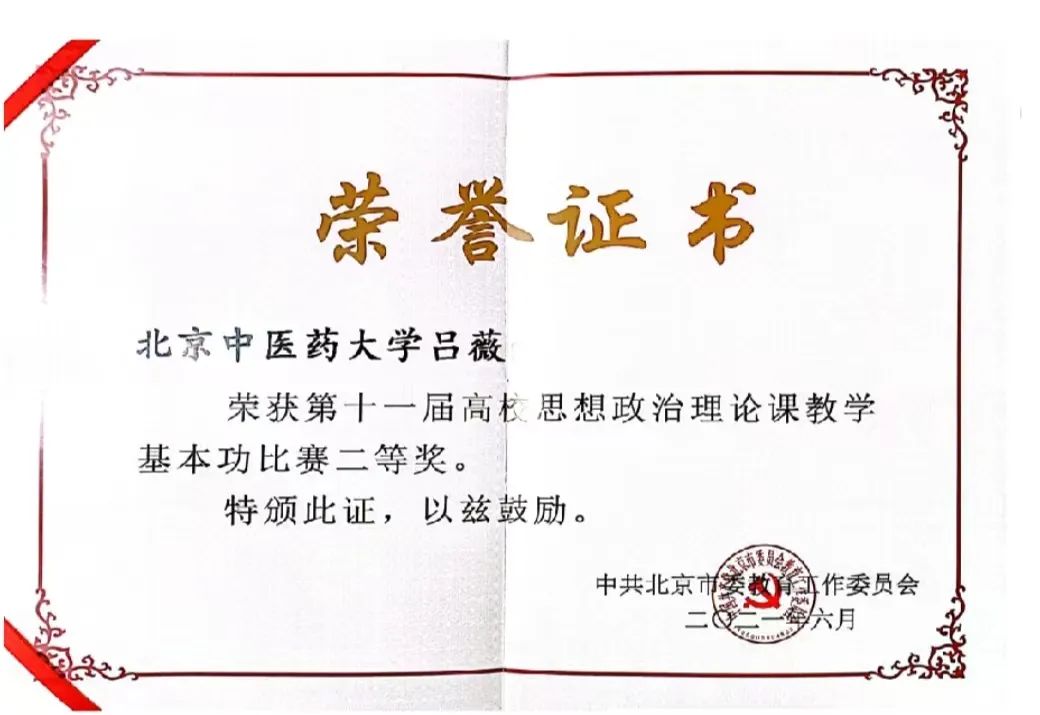 荣誉证书
北京中医药大学吕薇
荣获第十一届高校思想政治理论课教学
基本功比赛二等奖。
特颁此证，以兹鼓励。
中共北京市委教育工作委员会
二〇二一年六月